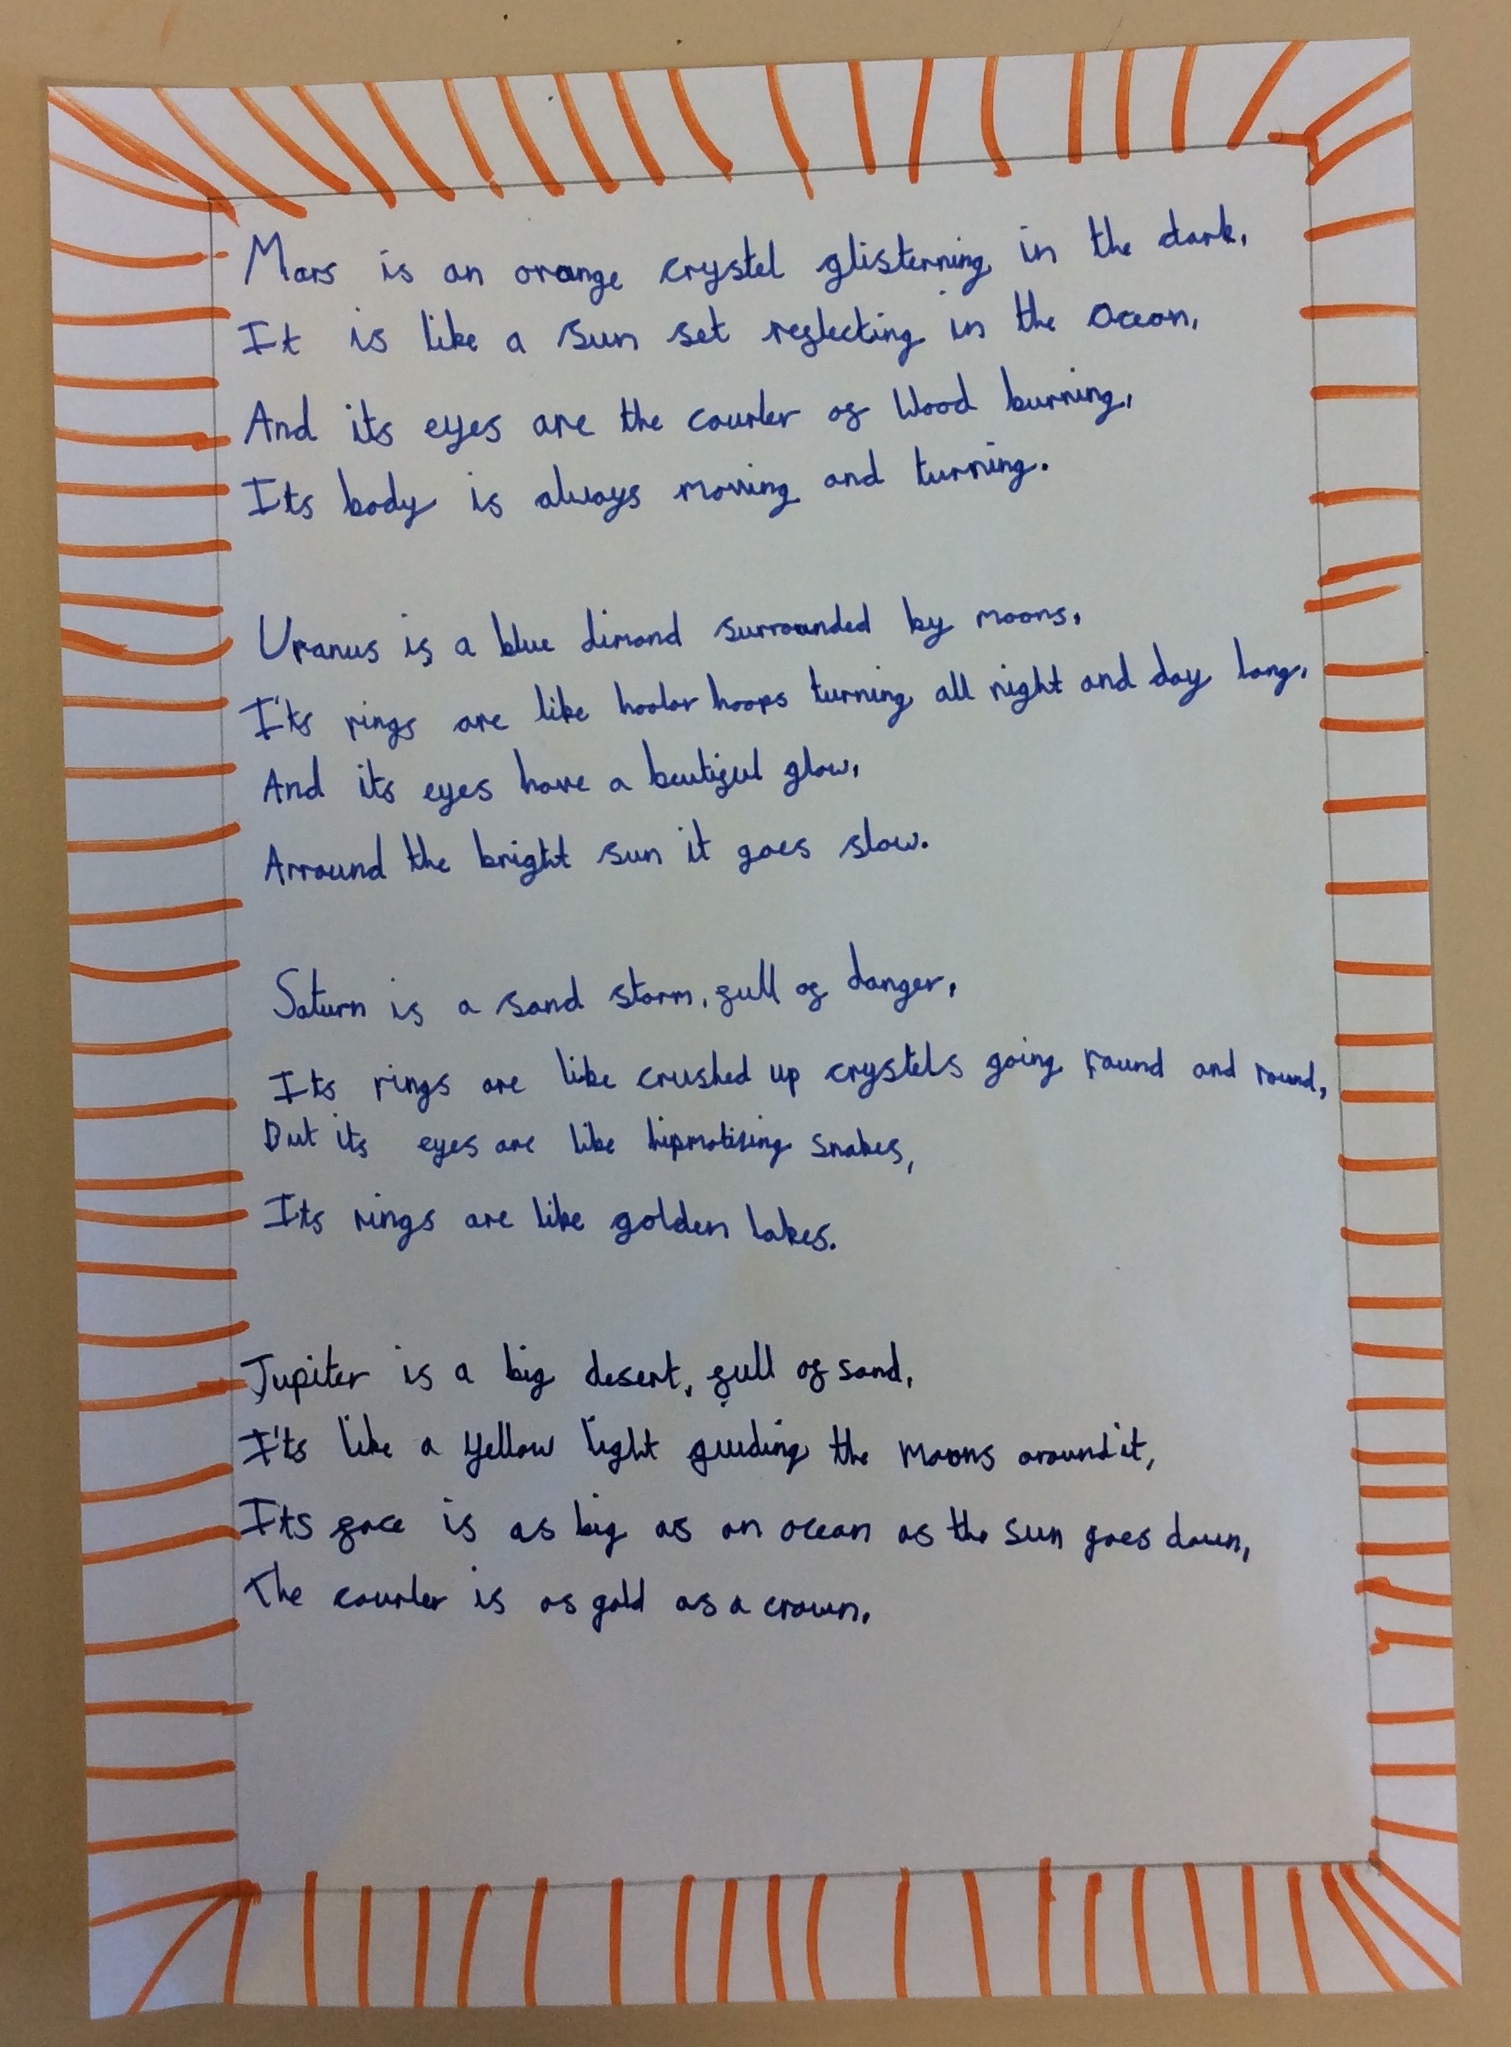 Mars is an orange crystel glisterning in the dark,
It is like a sun set reflecting in the Ocean,
And its eyes are the courler of Wood burning,
Its body is always moving and turning.
Uranus is a blue dimond surrounded by moons,
I'ts rings are like hoolar hoops turning all night and day long,
And its eyes have a beutiful glow,
Arround the bright sun it goes slow.
Saturn is a sand storm, full of danger,
Its rings are like crushed up crystels going round and round,
But its eyes are like hipmotising snakes,
Its rings are like golden lakes.
Jupiter is a big desert, full of sand,
I'ts like a yellow light guiding the moons around it,
Its face is as big as an ocean as the sun goes down,
The courler is as gold as a crown.